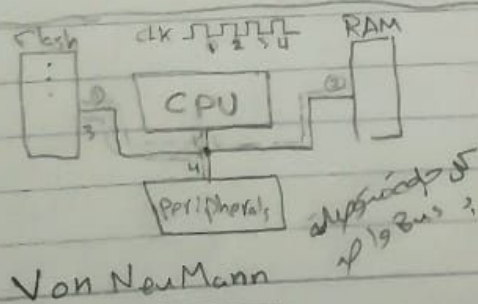 Flash
CLK
1 2 3 4
RAM
①
CPU
②
3
4
Peripherals
Bus
Von NeuMann